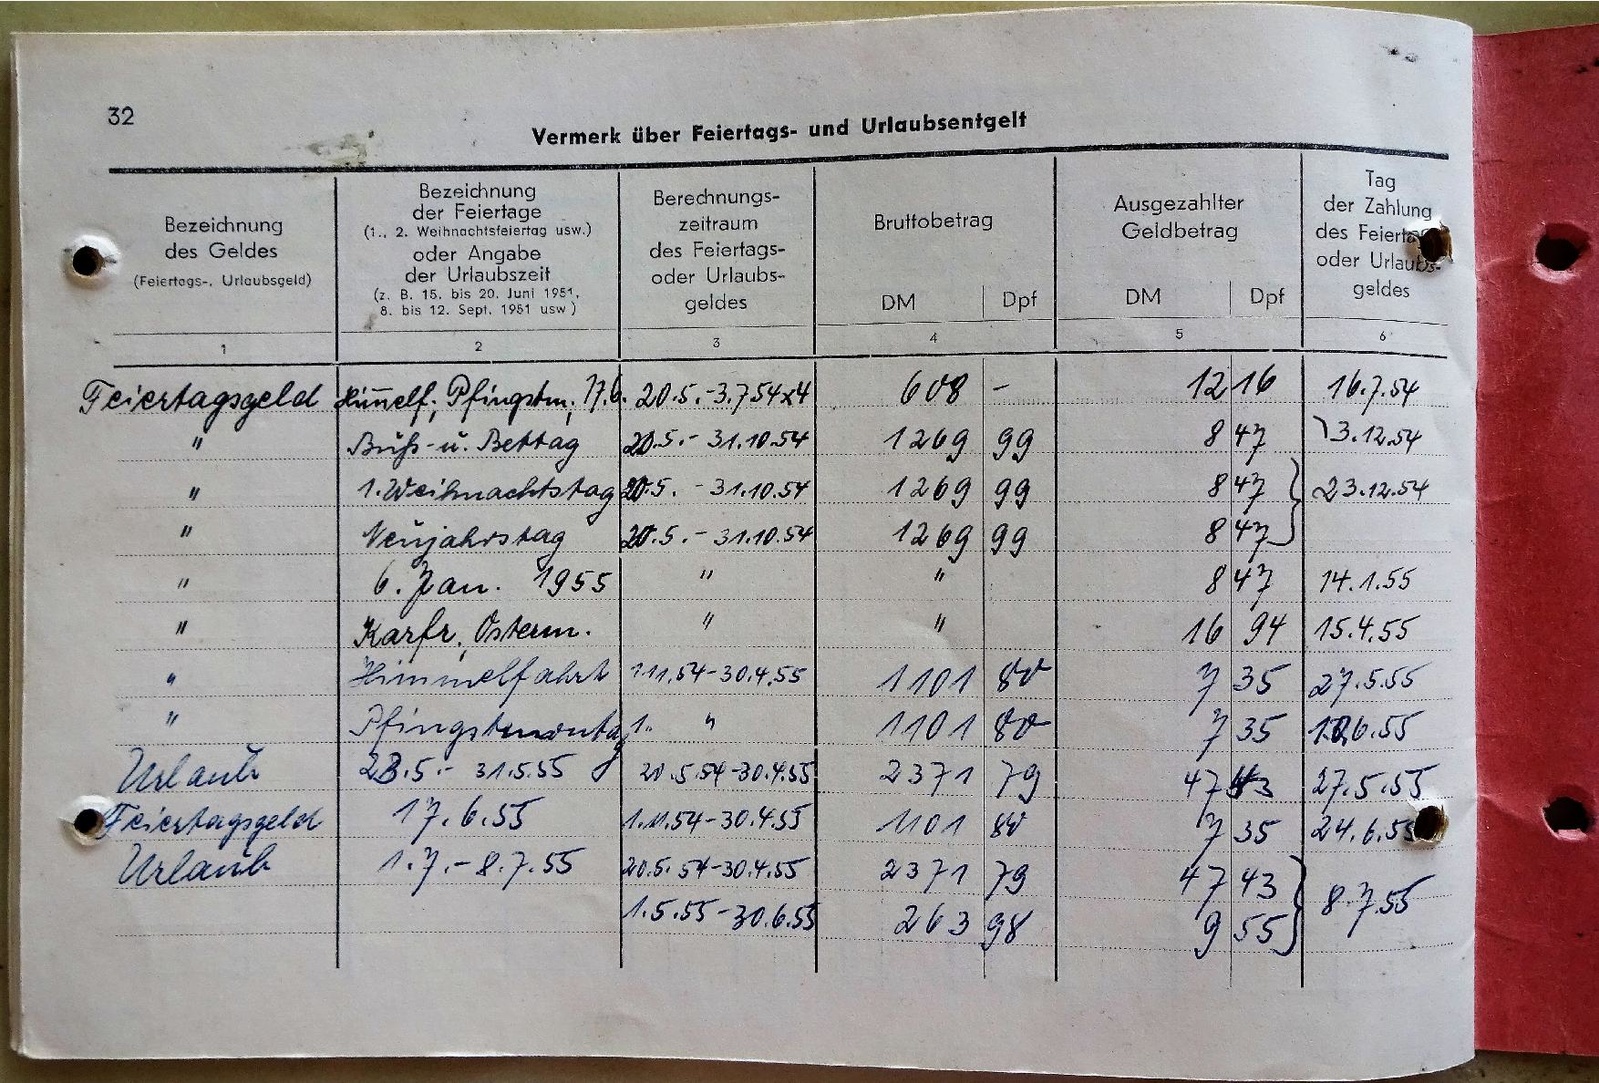 32
Vermerk über Feiertags- und Urlaubsentgelt
Bezeichnung
des Geldes
(Feiertags-, Urlaubsgeld)
Bezeichnung
der Feiertage
(1., 2. Weihnachtsfeiertag usw.)
oder Angabe
der Urlaubszeit
(z. B. 15. bis 20. Juni 1951,
8. bis 12. Sept. 1951 usw.)
Berechnungs-
zeitraum
des Feiertags-
oder Urlaubs-
geldes
Bruttobetrag
DM Dpf
Ausgezahlter
Geldbetrag
DM Dpf
Tag
der Zahlung
des Feiertags-
oder Urlaubs-
geldes
1 2 3 4 5 6
Feiertagsgeld Himmelf., Pfingstm., 17.6. 20.5.-3.7.54 x4 608 - 12 16 16.7.54
" Buß- u. Bettag 20.5.- 31.10.54 1269 99 8 47 3.12.54
" 1. Weihnachtstag 20.5. - 31.10.54 1269 99 8 47 } 23.12.54
" Neujahrstag 20.5. - 31.10.54 1269 99 8 47
" 6. Jan. 1955 " " 8 47 14.1.55
" Karfr., Osterm. " " 16 94 15.4.55
" Himmelfahrt 1.11.54-30.4.55 1101 80 7 35 27.5.55
" Pfingstmontag 1. " 1101 80 7 35 6.55
Urlaub 28.5.- 31.5.55 20.5.54-30.4.55 2371 79 47 43 27.5.55
Feiertagsgeld 17.6.55 1.11.54-30.4.55 1101 80 7 35 24.6.55
Urlaub 1.7.- 8.7.55 20.5.54-30.4.55 2371 79 47 43 } 8.7.55
1.5.55-30.6.55 263 98 9 55